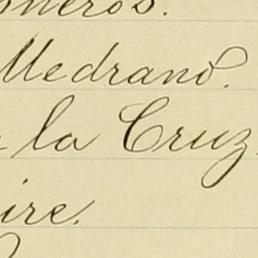 oneros.
Medrano.
la Cruz
ire.